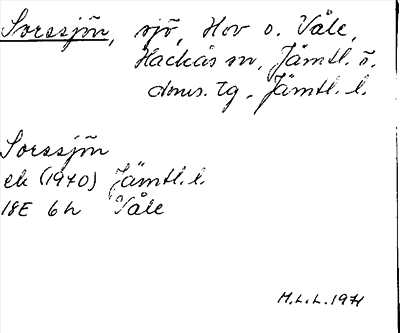 Sorssjön, sjö, Hov o. Våle,
Hackås sn, Jämtl. ö.
doms. tg, Jämtl. l.
Sorssjön
ek (1970) Jämtl. l.
18E 6h Våle
M.L.L. 1971